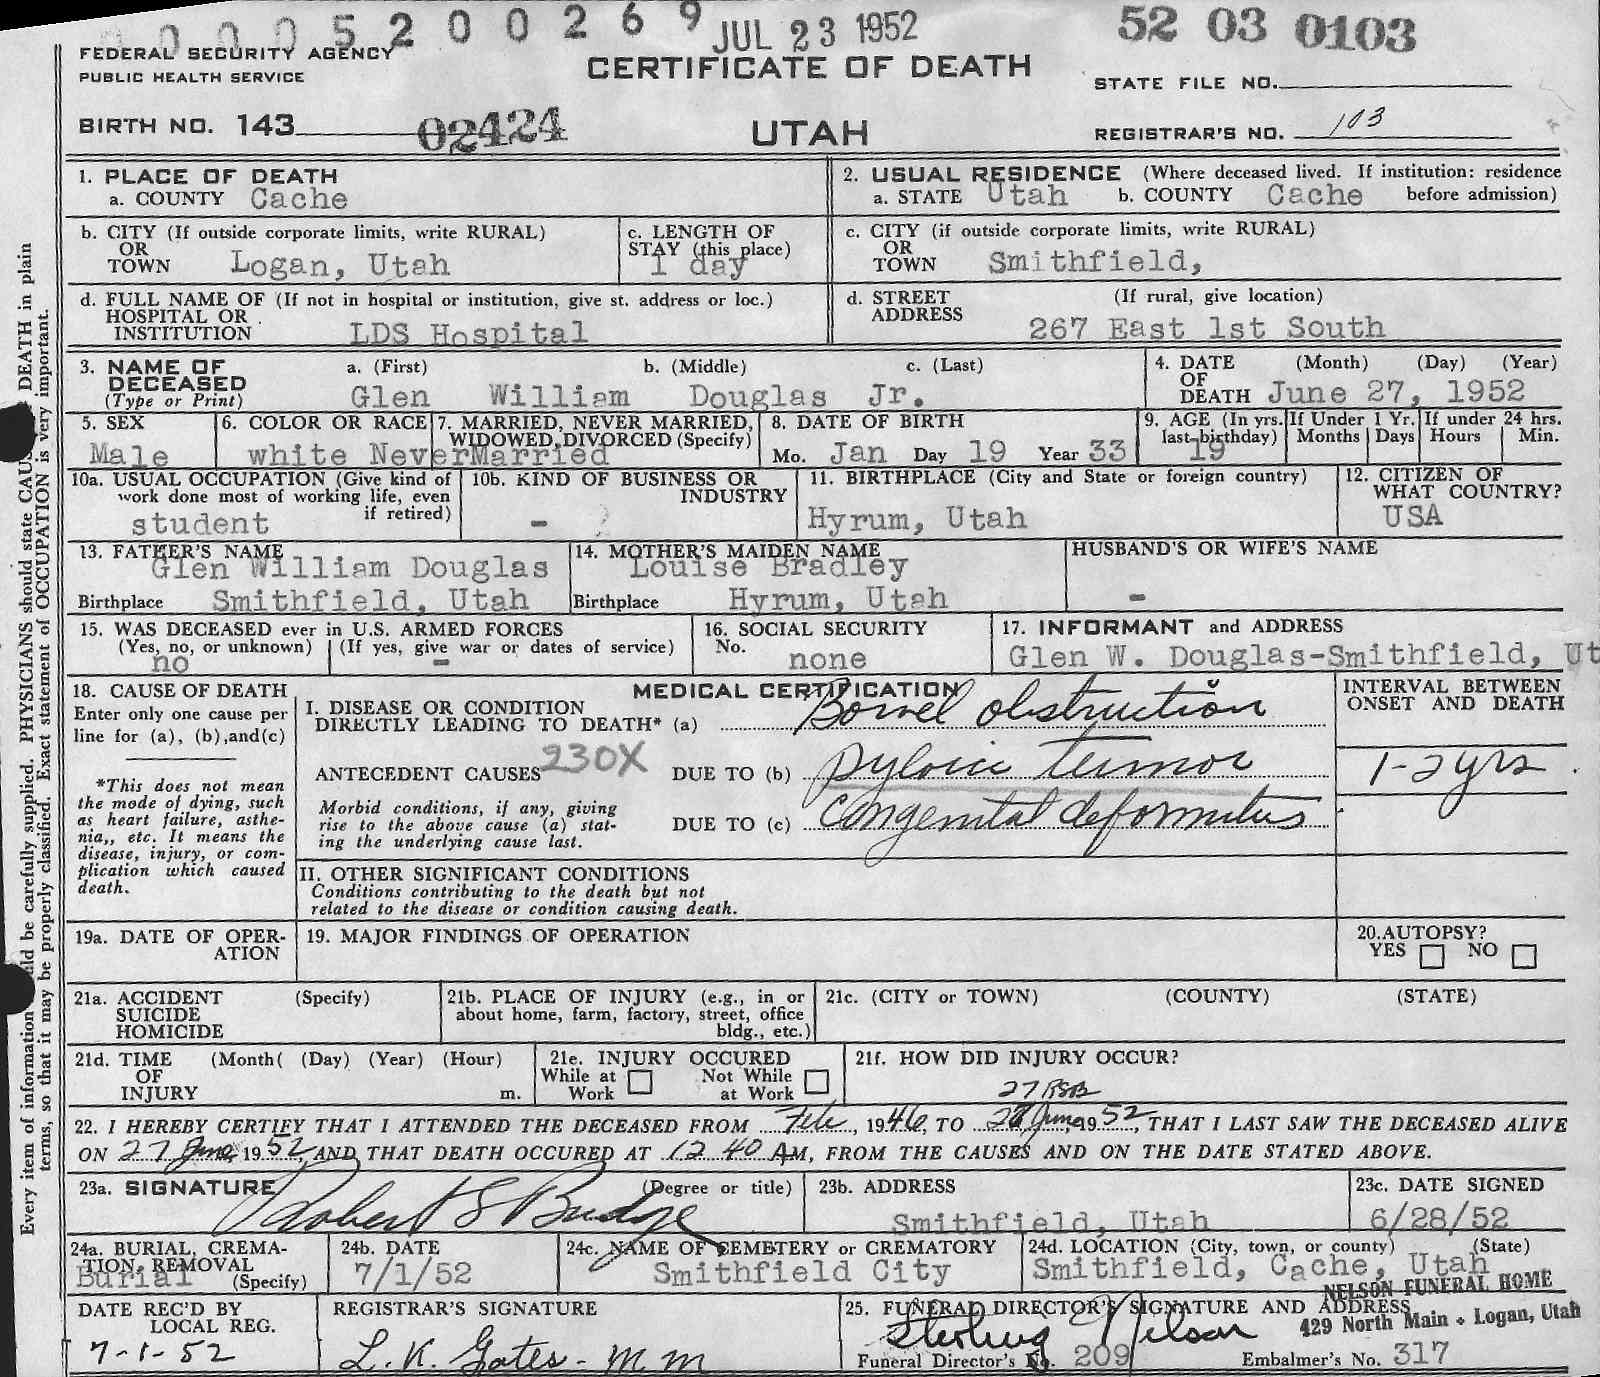 0 0 0 5 2 0 0 2 6 9 JUL 23 1952 52 03 0103
FEDERAL SECURITY AGENCY
PUBLIC HEALTH SERVICE
CERTIFICATE OF DEATH
STATE FILE NO.
BIRTH NO. 143 02424
UTAH
REGISTRAR'S NO. 103
1. PLACE OF DEATH
a. COUNTY Cache
2. USUAL RESIDENCE (Where deceased lived. If institution: residence
a. STATE Utah b. COUNTY Cache before admission)
b. CITY (If outside corporate limits, write RURAL)
OR
TOWN Logan, Utah
c. LENGTH OF
STAY (this place)
1 day
c. CITY (if outside corporate limits, write RURAL)
OR
TOWN Smithfield,
d. FULL NAME OF (If not in hospital or institution, give st. address or loc.)
HOSPITAL OR
INSTITUTION LDS Hospital
d. STREET (If rural, give location)
ADDRESS
267 East 1st South
3. NAME OF a. (First) b. (Middle) c. (Last)
DECEASED
(Type or Print) Glen William Douglas Jr.
4. DATE (Month) (Day) (Year)
OF
DEATH June 27, 1952
5. SEX
Male
6. COLOR OR RACE
white
7. MARRIED, NEVER MARRIED,
WIDOWED, DIVORCED (Specify)
NeverMarried
8. DATE OF BIRTH
Mo. Jan Day 19 Year 33
9. AGE (In yrs.
last birthday)
19
If Under 1 Yr.
Months Days
If under 24 hrs.
Hours Min.
10a. USUAL OCCUPATION (Give kind of
work done most of working life, even
if retired)
student
10b. KIND OF BUSINESS OR
INDUSTRY
-
11. BIRTHPLACE (City and State or foreign country)
Hyrum, Utah
12. CITIZEN OF
WHAT COUNTRY?
USA
13. FATHER'S NAME
Glen William Douglas
Birthplace Smithfield, Utah
14. MOTHER'S MAIDEN NAME
Louise Bradley
Birthplace Hyrum, Utah
HUSBAND'S OR WIFE'S NAME
-
15. WAS DECEASED ever in U.S. ARMED FORCES
(Yes, no, or unknown) (If yes, give war or dates of service)
no -
16. SOCIAL SECURITY
No.
none
17. INFORMANT and ADDRESS
Glen W. Douglas-Smithfield, Ut
18. CAUSE OF DEATH
Enter only one cause per
line for (a), (b),and(c)
*This does not mean
the mode of dying, such
as heart failure, asthe-
nia,, etc. It means the
disease, injury, or com-
plication which caused
death.
MEDICAL CERTIFICATION
I. DISEASE OR CONDITION
DIRECTLY LEADING TO DEATH* (a) Bowel obstruction
ANTECEDENT CAUSES 230X DUE TO (b) pyloric tumor
Morbid conditions, if any, giving
rise to the above cause (a) stat-
ing the underlying cause last.
DUE TO (c) Congenital deformities
INTERVAL BETWEEN
ONSET AND DEATH
1-2 yrs.
II. OTHER SIGNIFICANT CONDITIONS
Conditions contributing to the death but not
related to the disease or condition causing death.
19a. DATE OF OPER-
ATION
19. MAJOR FINDINGS OF OPERATION
20. AUTOPSY?
YES NO
21a. ACCIDENT (Specify)
SUICIDE
HOMICIDE
21b. PLACE OF INJURY (e.g., in or
about home, farm, factory, street, office
bldg., etc.)
21c. (CITY or TOWN) (COUNTY) (STATE)
21d. TIME (Month( (Day) (Year) (Hour)
OF
INJURY m.
21e. INJURY OCCURED
While at Work Not While at Work
21f. HOW DID INJURY OCCUR?
27 RSB
22. I HEREBY CERTIFY THAT I ATTENDED THE DECEASED FROM Feb, 1946, TO June, 1952, THAT I LAST SAW THE DECEASED ALIVE
ON 27 June, 1952, AND THAT DEATH OCCURED AT 12 40 AM, FROM THE CAUSES AND ON THE DATE STATED ABOVE.
23a. SIGNATURE (Degree or title)
Robert S Budge
23b. ADDRESS
Smithfield, Utah
23c. DATE SIGNED
6/28/52
24a. BURIAL, CREMA-
TION, REMOVAL
Burial (Specify)
24b. DATE
7/1/52
24c. NAME OF CEMETERY or CREMATORY
Smithfield City
24d. LOCATION (City, town, or county) (State)
Smithfield, Cache, Utah
DATE REC'D BY
LOCAL REG.
7-1-52
REGISTRAR'S SIGNATURE
L. K. Gates - M M
25. FUNERAL DIRECTOR'S SIGNATURE AND ADDRESS
Sterling Nelson
NELSON FUNERAL HOME
429 North Main - Logan, Utah
Funeral Director's No. 209 Embalmer's No. 317
Every item of information should be carefully supplied. PHYSICIANS should state CAUSE OF DEATH in plain
terms, so that it may be properly classified. Exact statement of OCCUPATION is very important.